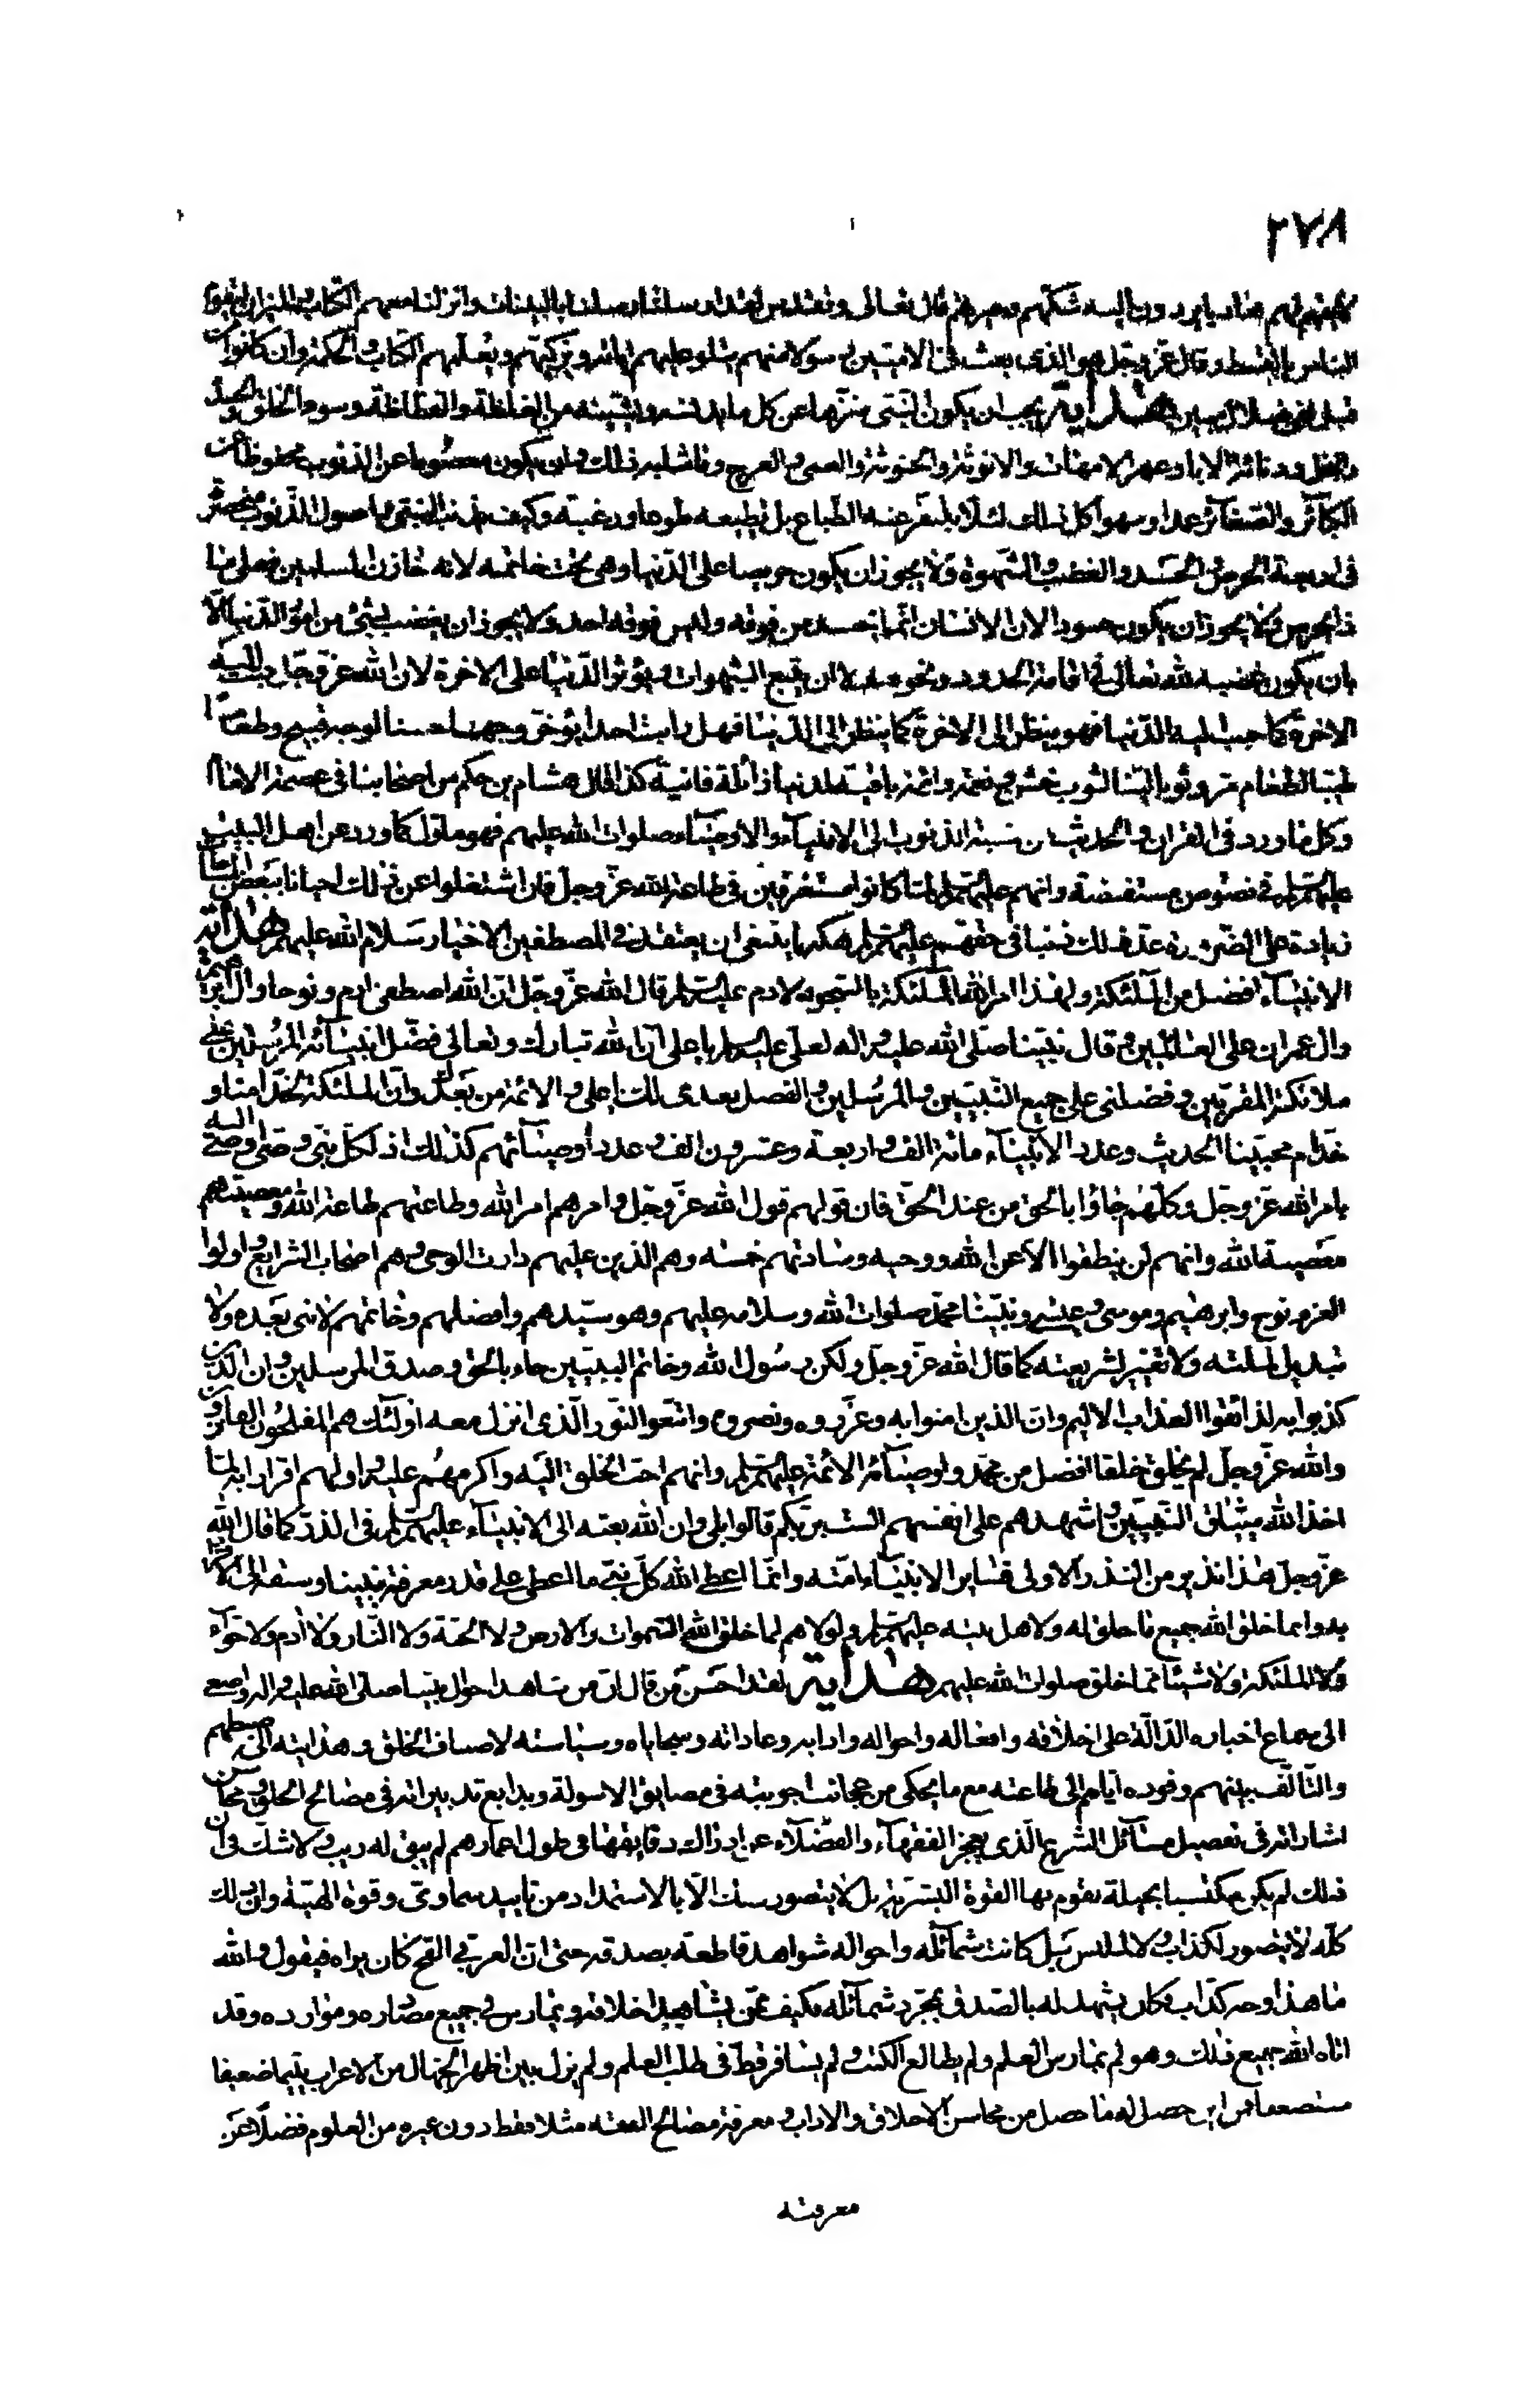 ٢٧٨
لهم منارا يردون اليه شكهم وحيرتهم قال تعالى ولقد ارسلنا رسلنا بالبينات وانزلنا معهم الكتاب والميزان ليقوم
الناس بالقسط وقال عزّ وجلّ هو الذى بعث فى الاميّين رسولا منهم يتلو عليهم اياته ويزكيهم ويعلّمهم الكتاب والحكمة وان كانوا من
قبل لفى ضلال مبين هداية يجب ان يكون النبى منزّها عن كل ما يدنسه ويشينه من الغلظة والفظاظة وسوء الخلق والحسد
والبخل ودنائة الاباء وعهر الامهات والانوثة والخنوثة والعمى والعرج وما شابه ذلك وان يكون معصوما عن الذنوب محفوظا عن
الكبائر والصغائر عمدا وسهوا كل ذلك لئلا يتنفر عنه الطباع بل تطيعه طوعا ورغبة وكيف يذنب النبى واصول الذنوب منحصرة
فى اربعة الحرص والحسد والغضب والشهوة ولا يجوز ان يكون حريصا على الدنيا وهى تحت خاتمه لانه خازن المسلمين فعلى ما
ذا يحرص ولا يجوز ان يكون حسودا لان الانسان انما يحسد من فوقه وليس فوقه احد ولا يجوز ان يغضب لشئ من امور الدنيا الّا
بان يكون غضبه لله تعالى فى اقامة الحدود ونحوه ولا ان يتبع الشهوات ويؤثر الدنيا على الاخرة لان الله عزّ وجلّ حبّب اليه
الاخرة كما حبب اليه الدنيا فهو ينظر الى الاخرة كما ينظر الى الدنيا فهل رايت احدا يؤخّر وجها حسنا لوجه قبيح وطعاما
طيبا لطعام مرّ وثوبا لينا لثوب خشن ونعمة دائمة باقية لدنيا زائلة فانية كذا قال هشام بن حكم من اصحابنا فى عصمة الامام
وكل ما ورد فى القران والحديث من نسبة الذنوب الى الانبياء والاوصياء صلوات الله عليهم فهو ماوّل كما ورد عن اهل البيت
عليهم السلام فى نصوص مستفيضة وانهم عليهم السلام لمّا كانوا مستغرقين فى طاعة الله عزّ وجلّ فاذا اشتغلوا عن ذلك احيانا ببعض المباحات
زيادة على الضرورة عدّ ذلك ذنبا فى حقهم عليهم السلام هكذا ينبغى ان يعتقد فى المصطفين الاخيار سلام الله عليهم هداية
الانبياء افضل من الملئكة ولهذا امر الله الملئكة بالسجود لادم عليه السلام قال الله عزّ وجلّ انّ الله اصطفى ادم ونوحا وال ابرهيم
وال عمران على العالمين وقال نبينا صلّى الله عليه واله لعلىّ عليه السلام يا على انّ الله تبارك وتعالى فضّل انبيائه المرسلين على
ملائكته المقربين وفضلنى على جميع النبيين والمرسلين والفضل بعدى لك يا على والائمة من بعدك وانّ الملئكة لخدّامنا و
خدّام محبّينا الحديث وعدد الانبياء مائة الف واربعة وعشرون الف وعدد اوصيائهم كذلك اذ لكل نبى وصىّ اوصى اليه
بامر الله عزّ وجلّ وكلّهم جاؤا بالحق من عند الحقّ فان قولهم قول الله عزّ وجلّ وامرهم امر الله وطاعتهم طاعة الله ومعصيتهم
معصية الله وانهم لن ينطقوا الّا عن الله ووحيه وسادتهم خمسة وهم الذين عليهم دارت الوحى وهم اصحاب الشرايع واولوا
العزم نوح وابرهيم وموسى وعيسى ونبيّنا محمّد صلوات الله وسلامه عليهم وهو سيّدهم وافضلهم وخاتمهم لا نبى بعده ولا
تبديل لملته ولا تغيير لشريعته كما قال الله عزّ وجلّ ولكن رسول الله وخاتم النبيين جاء بالحق وصدق المرسلين وان الذين
كذبوا به لذائقوا العذاب الاليم وان الذين امنوا به وعزّروه ونصروه واتبعوا النور الّذى انزل معه اولئك هم المفلحون الفائزون
والله عزّ وجلّ لم يخلق خلقا افضل من محمد واوصيائه الائمة عليهم السلام وانهم احبّ الخلق اليه واكرمهم عليه واولهم اقرارا به لمّا
اخذ الله ميثاق النبيين واشهدهم على انفسهم الست بربكم قالوا بلى وان الله بعثه الى الانبياء عليهم السلام فى الذرّ كما قال الله
عزّ وجلّ هذا نذير من النذر الاولى فساير الانبياء امته وانما اعطى الله كلّ نبى ما اعطى على قدر معرفة نبينا وسبقه الى الاقرار
به وانما خلق الله جميع ما خلق له ولاهل بيته عليهم السلام ولولاهم لما خلق الله السموات والارض ولا الجنة ولا النار ولا آدم ولا حوّاء
ولا الملئكة ولا شيئا ممّا خلق صلوات الله عليهم هداية لقد احسن من قال انّ من شاهد احوال نبينا صلى الله عليه واله واصغى
الى سماع اخباره الدالة على اخلاقه وافعاله واحواله وادابه وعاداته وسجاياه وسياسته لاصناف الخلق وهدايته الى ضبطهم
والتآلف بينهم وقوده اياهم الى طاعته مع ما يحكى من عجائب اجوبته فى مضايق الاسولة وبدايع تدبيراته فى مصالح الخلق ومحاسن
اشاراته فى تفصيل مسائل الشرع الذى يعجز الفقهاء والفضلاء عن ادراك دقايقها فى طول اعمارهم لم يبق له ريب ولا شك فى ان
ذلك لم يكن مكتسبا بحيلة تقوم بها القوة البشرية بل لا يتصور ذلك الّا بالاستمداد من تاييد سماوىّ وقوة الهيّة وان ذلك
كلّه لا يتصور لكذاب ولا لملبس بل كانت شمائله واحواله شواهد قاطعة بصدقه حتى انّ العربى القح كان يراه فيقول والله
ما هذا وجه كذّاب فكان يشهد له بالصدق بمجرّد شمائله فكيف بمن يشاهد اخلاقه ويمارس فى جميع مصادره وموارده وقد
اتاه الله جميع ذلك وهو لم يمارس العلم ولم يطالع الكتب ولم يسافر قطّ فى طلب العلم ولم يزل بين اظهر الجهال من الاعراب يتيما ضعيفا
مستضعفا من اين حصل له ما حصل من محاسن الاخلاق والاداب ومعرفة مصالح الفقه مثلا فقط دون غيره من العلوم فضلا عن
معرفته